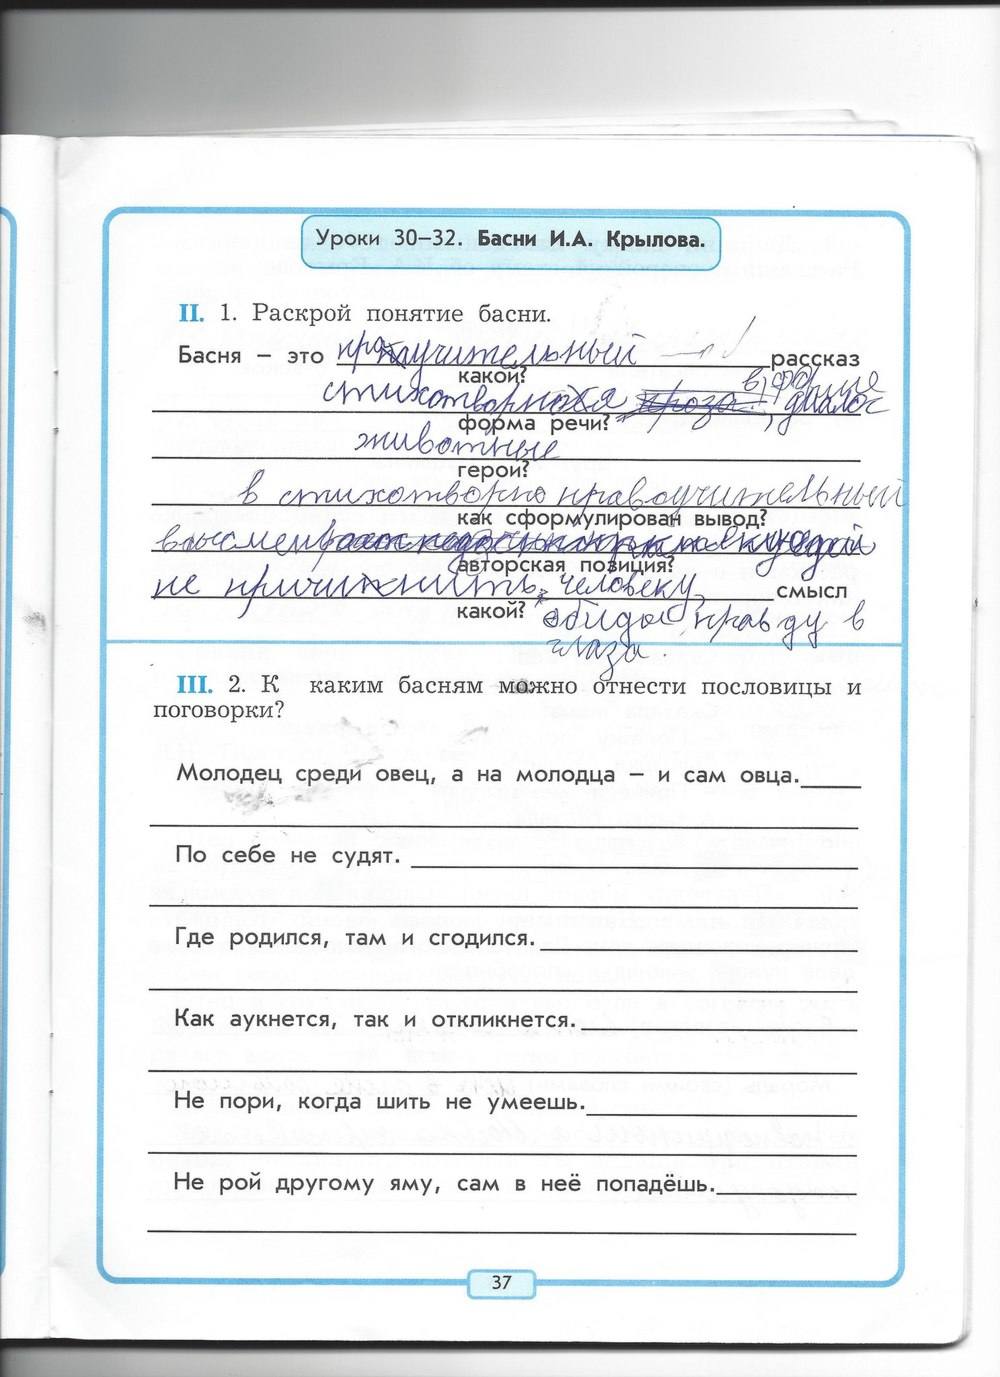 Уроки 30–32. Басни И.А. Крылова.
II. 1. Раскрой понятие басни.
Басня – это нравоучительный рассказ
какой?
стихотворная проза в форме
диалог
форма речи?
животные
герои?
в стихотворно нравоучительный
как сформулирован вывод?
авторская позиция?
не причинить человеку смысл
какой?
обиды правду в
глаза.
III. 2. К каким басням можно отнести пословицы и
поговорки?
Молодец среди овец, а на молодца – и сам овца.
По себе не судят.
Где родился, там и сгодился.
Как аукнется, так и откликнется.
Не пори, когда шить не умеешь.
Не рой другому яму, сам в неё попадёшь.
37